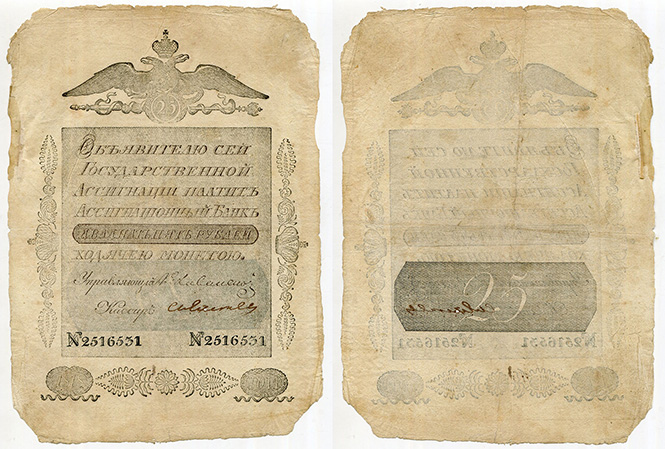 25
Объявителю сей
Государственной
Ассигнации платитъ
Ассигнационный Банкъ
двадцать пять рублей
ходячею монетою.
Управляющій
Кассиръ
№2516531 №2516531
25